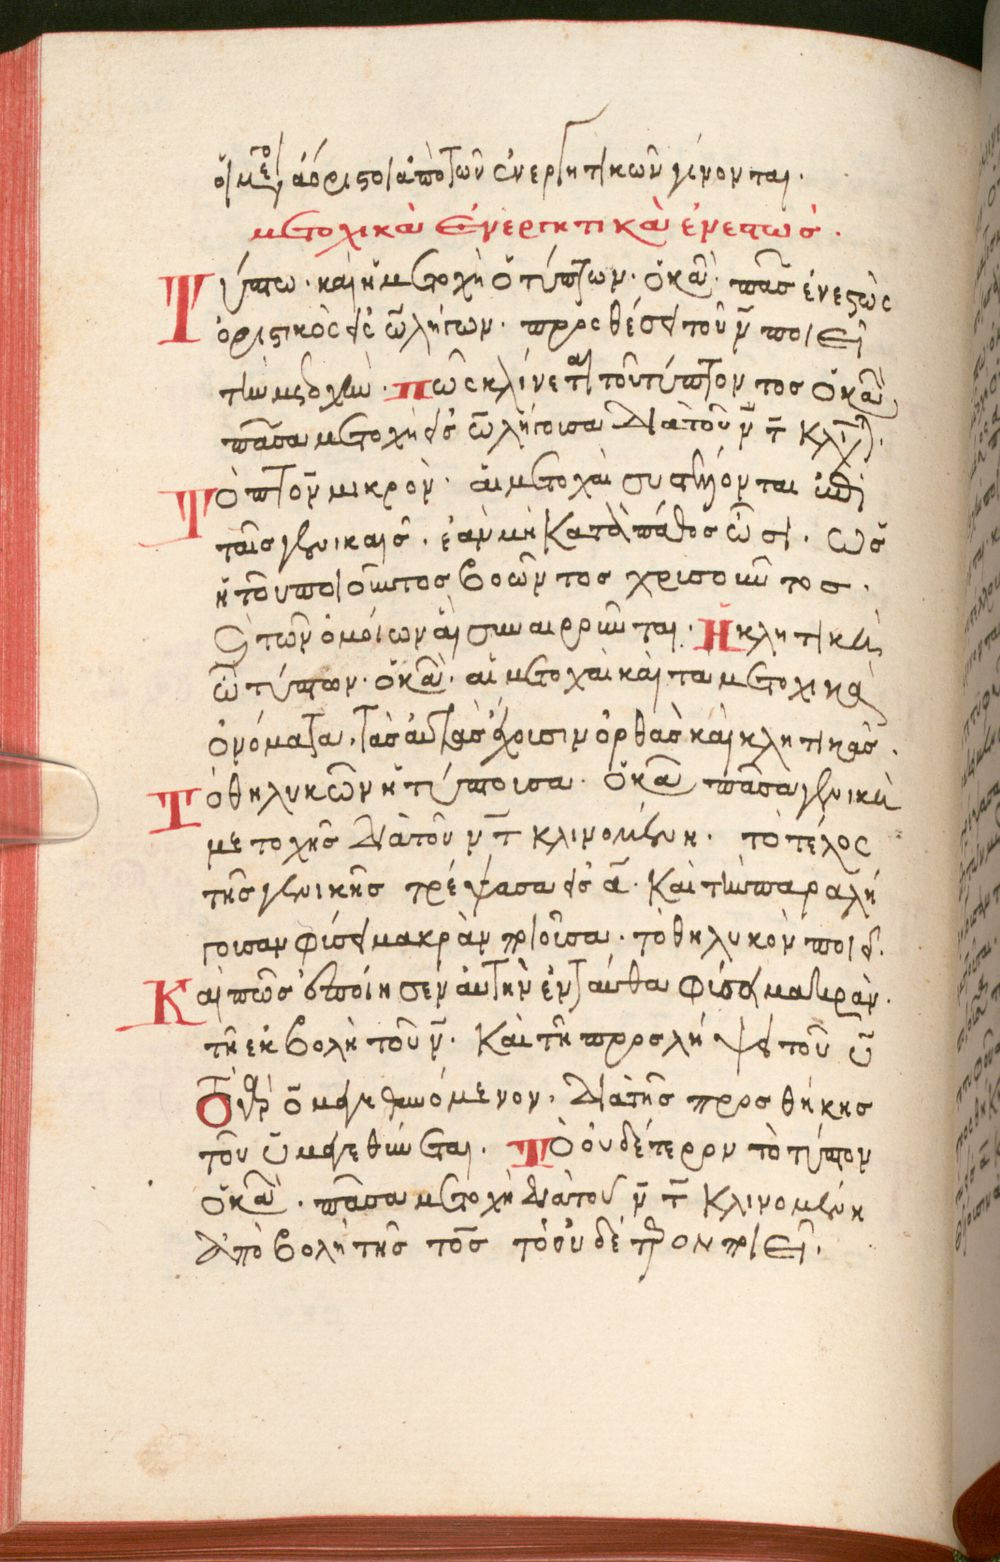 οἱ μέσοι ἀόριστοι ἀπὸ τῶν ἐνεργητικῶν γίνονται.
μετοχικὰ ἐνεργητικὰ ἐνεστώς.
Τύπτω. καὶ ἡ μετοχὴ ὁ τύπτων. ὁ κανών. πᾶς ἐνεστὼς
ὁριστικὸς εἰς ω λήγων. προσθέσει τοῦ ν ποιεῖ
τὴν μετοχήν. πῶς κλίνεται τοῦ τύπτοντος ὁ κανών
πᾶσα μετοχὴ εἰς ων λήγουσα διὰ τοῦ ντ κλ
Τὸ πτον μικρόν. αἱ μετοχαὶ συστέλλονται ἐπὶ
ταῖς γενικαῖς. ἐὰν μὴ κατὰ πάθος ὦσι. ὡς
ἡ τοῦ ποιοῦντος βοῶντος χρυσοῦντος.
καὶ τῶν ὁμοίων αἳ συναιροῦνται. Ἡ κλητικὴ
ὦ τύπτων. ὁ κανών. αἱ μετοχαὶ καὶ τὰ μετοχικὰ
ὀνόματα, τὰς αὐτὰς ἔχουσιν ὀρθὰς καὶ κλητικάς.
Τὸ θηλυκὸν ἡ τύπτουσα. ὁ κανών πᾶσα γενικὴ
μετοχῆς διὰ τοῦ ντ κλινομένη. τὸ τέλος
τῆς γενικῆς τρέψασα εἰς α. καὶ τὴν παραλή
γουσαν φύσει μακρὰν ποιοῦσα. τὸ θηλυκὸν ποιεῖ.
Καὶ πῶς ἐποίησεν αὐτὴν ἐνταῦθα φύσει μακράν.
τῇ ἐκβολῇ τοῦ ν. καὶ τῇ προσλήψει τοῦ υ
τοῦ υ μεγεθύνεται. Τὸ οὐδέτερον τὸ τύπτον
ὁ κανών. πᾶσα μετοχὴ διὰ τοῦ ντ κλινομένη
ἀποβολῇ τῆς τος τὸ οὐδέτερον ποιεῖ.